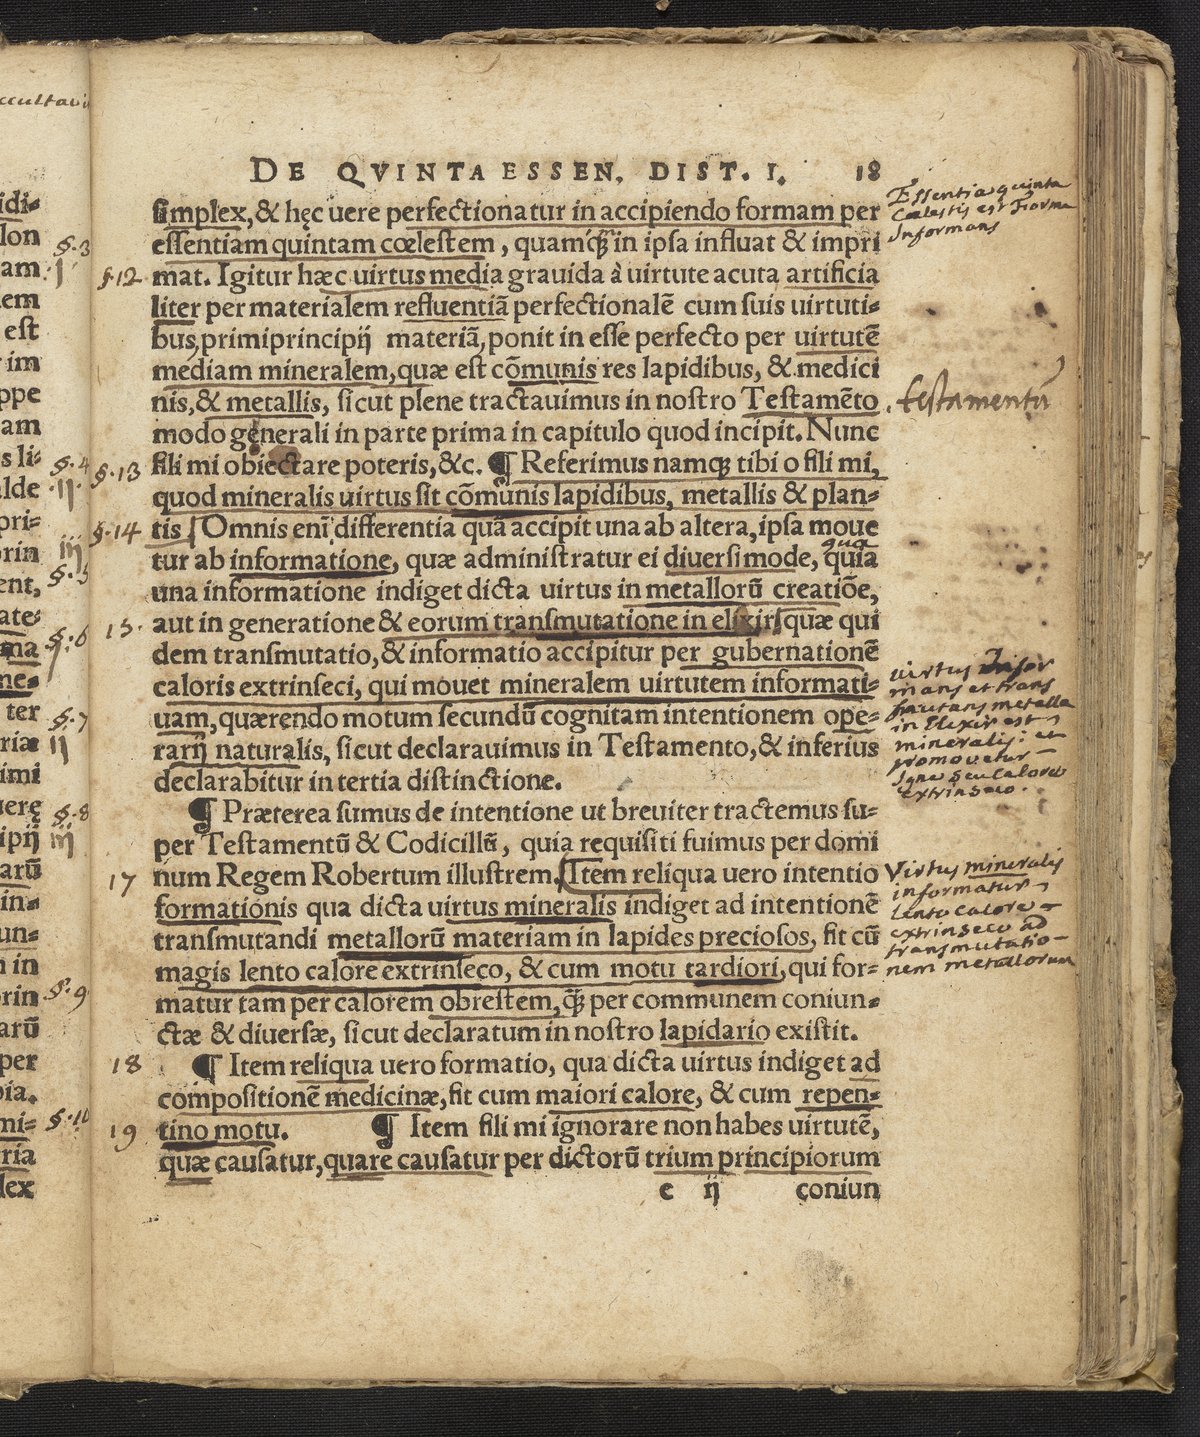 ccultavi
idi-
lon
§.3
am
j
em
est
im
ppe
am
s li-
§.4
alde
.ij.
pri-
orin
iij
§.5
ent,
ate-
ma
§.6
me-
ter
§.7
riæ
ij
imi
uerę
§.8
ipij
iij
arū
in-
un-
n in
orin
§.9
arū
per
pia.
mi-
§.10
ria
lex
DE QVINTA ESSEN. DIST. I. 18
simplex, & hęc uere perfectionatur in accipiendo formam per
essentiam quintam cœlestem, quamꝗ́ꝫ in ipsa influat & impri
§.12. mat. Igitur hæc uirtus media grauida à uirtute acuta artificia
liter per materialem refluentiā perfectionalē cum suis uirtuti-
bus, primi principij materiā, ponit in esse perfecto per uirtutē
mediam mineralem, quæ est cōmunis res lapidibus, & medici
nis, & metallis, sicut plene tractauimus in nostro Testamēto
modo generali in parte prima in capitulo quod incipit. Nunc
§.13 fili mi obiectare poteris, &c. ¶ Referimus namqꝫ tibi o fili mi,
quod mineralis uirtus sit cōmunis lapidibus, metallis & plan-
§.14 tis Omnis enī differentia quā accipit una ab altera, ipsa moue
qua
tur ab informatione, quæ administratur ei diuersimode, quia
una informatione indiget dicta uirtus in metallorū creatiōe,
15. aut in generatione & eorum transmutatione in elixir quæ qui
dem transmutatio, & informatio accipitur per gubernationē
caloris extrinseci, qui mouet mineralem uirtutem informati-
uam, quærendo motum secundū cognitam intentionem ope-
rarij naturalis, sicut declarauimus in Testamento, & inferius
declarabitur in tertia distinctione.
¶ Præterea sumus de intentione ut breuiter tractemus su-
per Testamentū & Codicillū, quia requisiti fuimus per domi
17 num Regem Robertum illustrem. Item reliqua uero intentio
formationis qua dicta uirtus mineralis indiget ad intentionē
transmutandi metallorū materiam in lapides preciosos, fit cū
magis lento calore extrinseco, & cum motu tardiori, qui for-
matur tam per calorem obrestem, ꝗꝫ per communem coniun-
ctæ & diuersæ, sicut declaratum in nostro lapidario existit.
18 ¶ Item reliqua uero formatio, qua dicta uirtus indiget ad
compositionē medicinæ, fit cum maiori calore, & cum repen-
19 tino motu. ¶ Item fili mi ignorare non habes uirtutē,
quæ causatur, quare causatur per dictorū trium principiorum
e ij coniun
Essentia quinta
Cœlestis est Forma
Informans
testamentū
virtus Infor
mans et trans
mutans metalla
in Elexir est
mineralis: et
promovetur
Igne seu Calore
extrinseco.
Virtus mineralis
informatur
lento calore
extrinseco ad
transmutatio-
nem metallorum